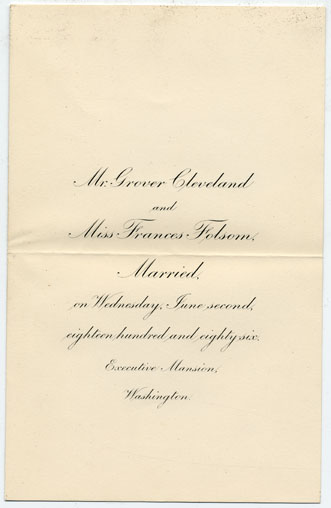 Mr. Grover Cleveland
and
Miss Frances Folsom,
Married,
on Wednesday, June second,
eighteen hundred and eighty six,
Executive Mansion,
Washington.